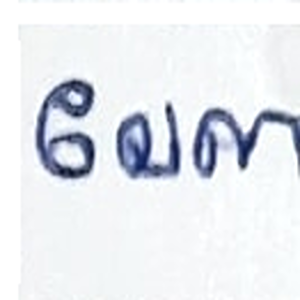 வேள